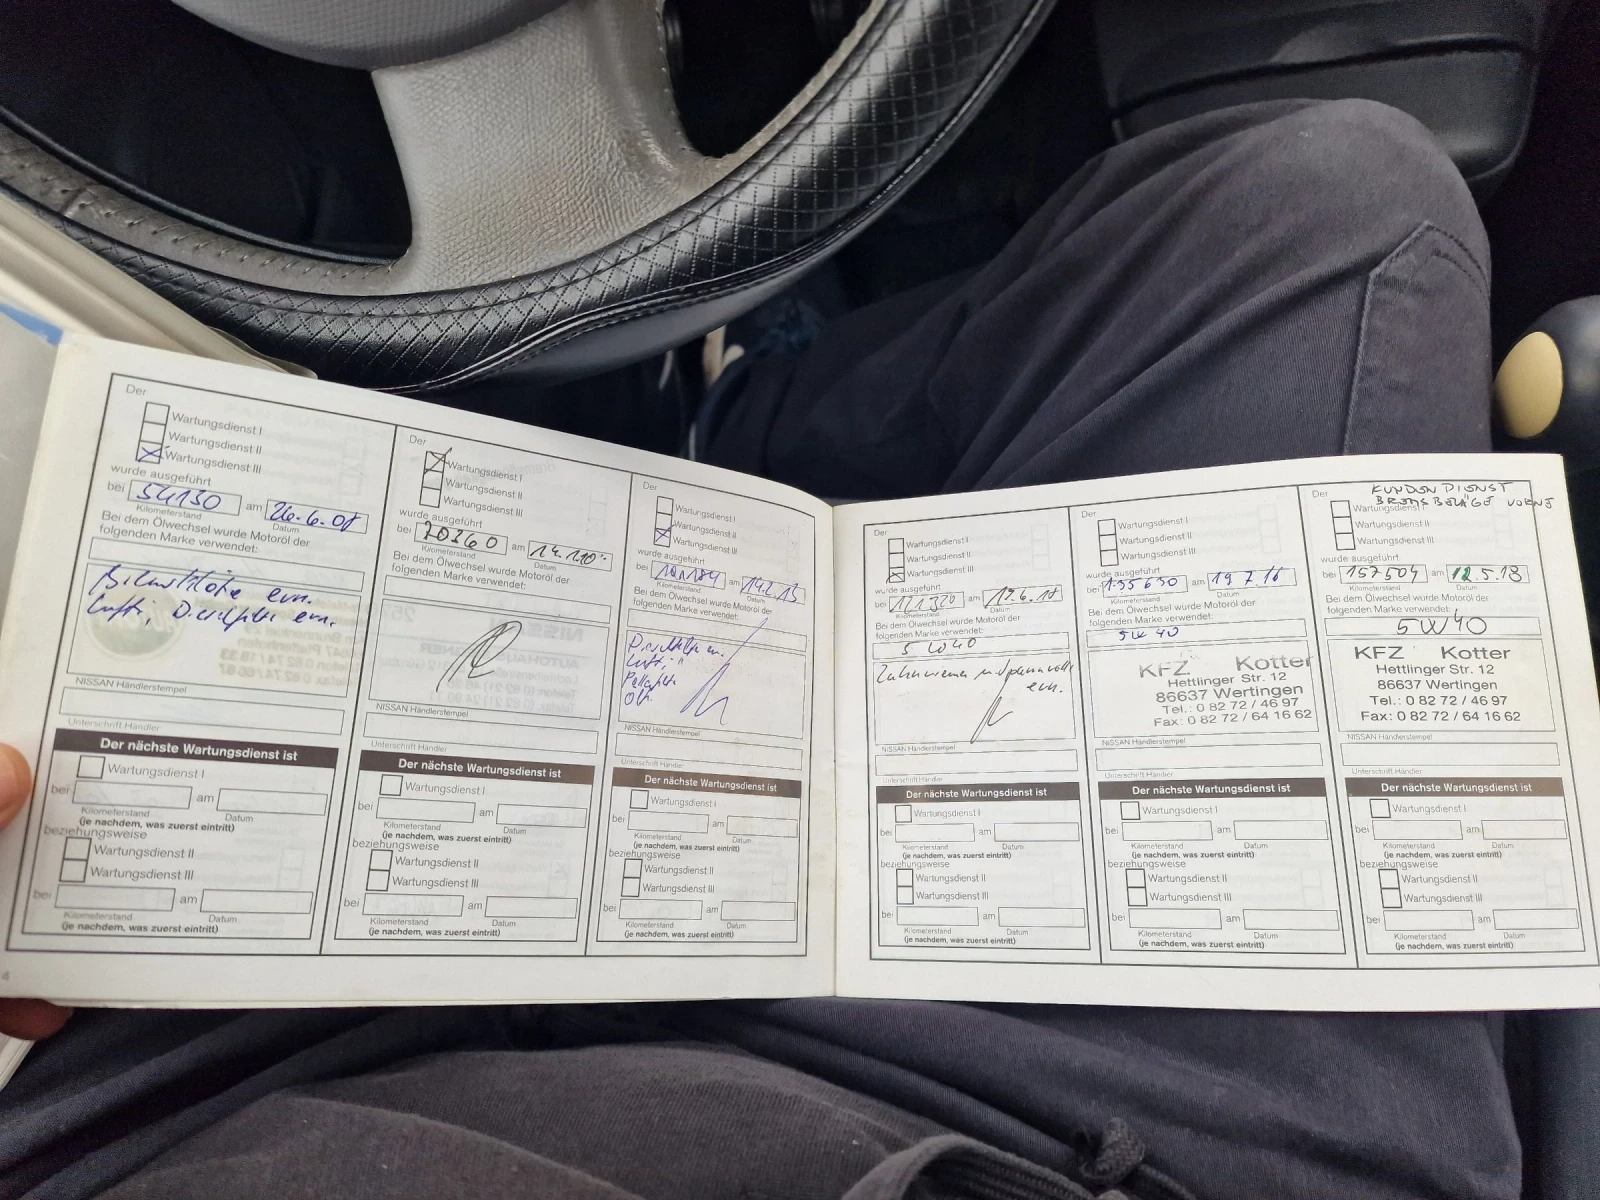 Der
Wartungsdienst I
Wartungsdienst II
Wartungsdienst III
wurde ausgeführt
bei 54130 am
Kilometerstand Datum
Bei dem Ölwechsel wurde Motoröl der
folgenden Marke verwendet:
ern.
Luftf., ern.
NISSAN Händlerstempel
Unterschrift Händler
Der nächste Wartungsdienst ist
Wartungsdienst I
bei am
Kilometerstand Datum
(je nachdem, was zuerst eintritt)
beziehungsweise
Wartungsdienst II
Wartungsdienst III
bei am
Kilometerstand Datum
(je nachdem, was zuerst eintritt)
4
Der
Wartungsdienst I
Wartungsdienst II
Wartungsdienst III
wurde ausgeführt
bei 70360 am
Kilometerstand Datum
Bei dem Ölwechsel wurde Motoröl der
folgenden Marke verwendet:
NISSAN Händlerstempel
Unterschrift Händler
Der nächste Wartungsdienst ist
Wartungsdienst I
bei am
Kilometerstand Datum
(je nachdem, was zuerst eintritt)
beziehungsweise
Wartungsdienst II
Wartungsdienst III
bei am
Kilometerstand Datum
(je nachdem, was zuerst eintritt)
Der
Wartungsdienst I
Wartungsdienst II
Wartungsdienst III
wurde ausgeführt
bei am
Kilometerstand Datum
Bei dem Ölwechsel wurde Motoröl der
folgenden Marke verwendet:
NISSAN Händlerstempel
Unterschrift Händler
Der nächste Wartungsdienst ist
Wartungsdienst I
bei am
Kilometerstand Datum
(je nachdem, was zuerst eintritt)
beziehungsweise
Wartungsdienst II
Wartungsdienst III
bei am
Kilometerstand Datum
(je nachdem, was zuerst eintritt)
Der
Wartungsdienst I
Wartungsdienst II
Wartungsdienst III
wurde ausgeführt
bei am
Kilometerstand Datum
Bei dem Ölwechsel wurde Motoröl der
folgenden Marke verwendet:
5 W 40
Zahnriemen
ern.
NISSAN Händlerstempel
Unterschrift Händler
Der nächste Wartungsdienst ist
Wartungsdienst I
bei am
Kilometerstand Datum
(je nachdem, was zuerst eintritt)
beziehungsweise
Wartungsdienst II
Wartungsdienst III
bei am
Kilometerstand Datum
(je nachdem, was zuerst eintritt)
Der
Wartungsdienst I
Wartungsdienst II
Wartungsdienst III
wurde ausgeführt
bei 135630 am 19.7.16
Kilometerstand Datum
Bei dem Ölwechsel wurde Motoröl der
folgenden Marke verwendet:
5W40
KFZ Kotter
Hettlinger Str. 12
86637 Wertingen
Tel.: 0 82 72 / 46 97
Fax: 0 82 72 / 64 16 62
NISSAN Händlerstempel
Unterschrift Händler
Der nächste Wartungsdienst ist
Wartungsdienst I
bei am
Kilometerstand Datum
(je nachdem, was zuerst eintritt)
beziehungsweise
Wartungsdienst II
Wartungsdienst III
bei am
Kilometerstand Datum
(je nachdem, was zuerst eintritt)
KUNDENDIENST
Der BREMSBELÄGE VORNE
Wartungsdienst I
Wartungsdienst II
Wartungsdienst III
wurde ausgeführt
bei 157504 am 12.5.18
Kilometerstand Datum
Bei dem Ölwechsel wurde Motoröl der
folgenden Marke verwendet:
5W40
KFZ Kotter
Hettlinger Str. 12
86637 Wertingen
Tel.: 0 82 72 / 46 97
Fax: 0 82 72 / 64 16 62
NISSAN Händlerstempel
Unterschrift Händler
Der nächste Wartungsdienst ist
Wartungsdienst I
bei am
Kilometerstand Datum
(je nachdem, was zuerst eintritt)
beziehungsweise
Wartungsdienst II
Wartungsdienst III
bei am
Kilometerstand Datum
(je nachdem, was zuerst eintritt)